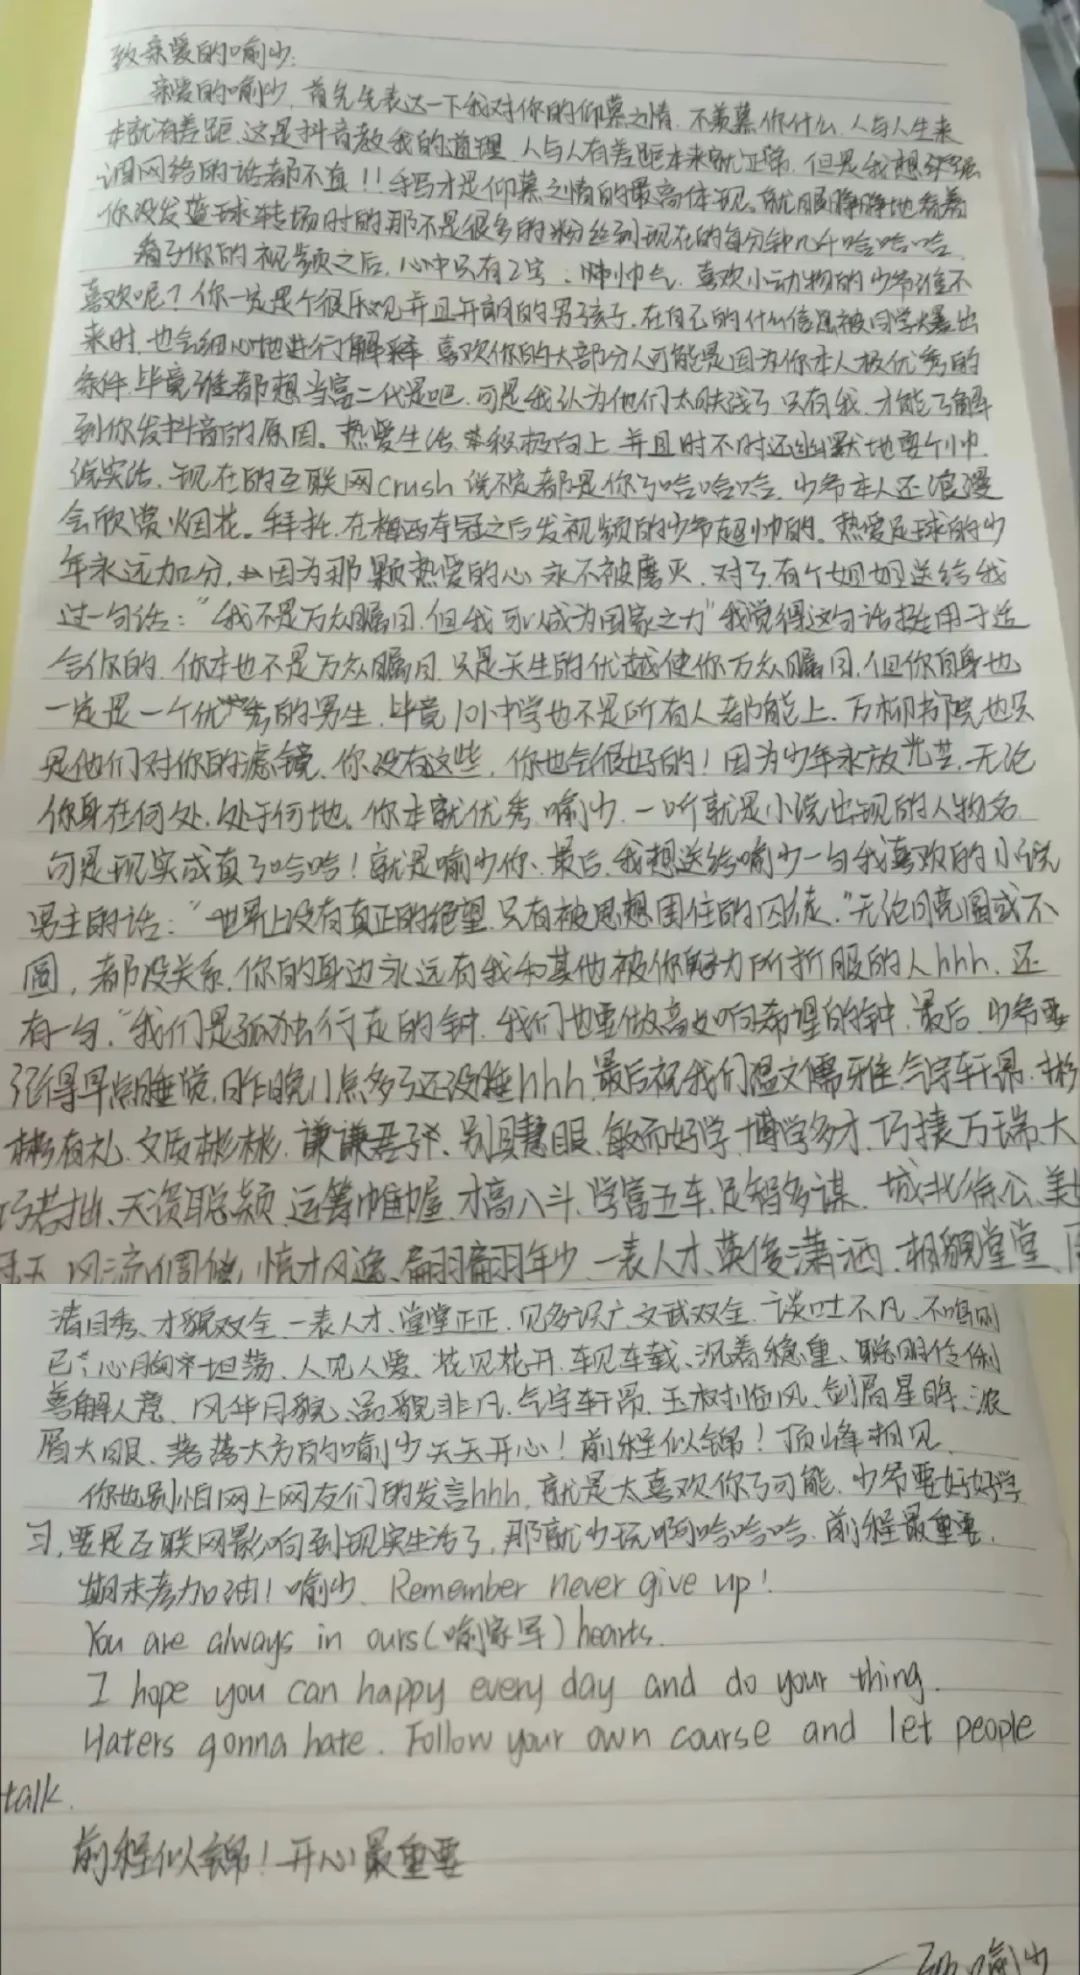 致亲爱的喻少:
亲爱的喻少,首先先表达一下我对你的仰慕之情.不羡慕你什么,人与人生来
本就有差距,这是抖音教我的道理,人与人有差距本来就正常.但是我想
网络的话都不真!!手写才是仰慕之情的最高体现。就眼睁睁地看着
你没发篮球转场时的那不是很多的粉丝到现在的每分钟几千哈哈哈.
看了你的视频之后,心中只有2字:帅帅气.喜欢小动物的少爷谁不
喜欢呢?你一定是个很乐观并且开朗的男孩子,在自己的什么信息被同学爆出
来时,也会细心地进行解释.喜欢你的大部分人可能是因为你本人极优秀的
条件,毕竟谁都想当富二代是吧.可是我认为他们太肤浅了,只有我,才能了解
到你发抖音的原因。热爱生活,积极向上,并且时不时还幽默地耍个帅.
说实话,现在的互联网crush说不定都是你了哈哈哈.少爷本人还浪漫
会欣赏烟花。拜托,在梅西夺冠之后发视频的少爷超帅的。热爱足球的少
年永远加分,因为那颗热爱的心永不被磨灭.对了,有个姐姐送给我
过一句话:"我不是万众瞩目,但我可以成为国家之力"我觉得这句话挺用于适
合你的.你本也不是万众瞩目,只是天生的优越使你万众瞩目,但你自身也
一定是一个优秀的男生.毕竟101中学也不是所有人都能上.万柳书院也只
是他们对你的滤镜.你没有这些,你也会很好的!因为少年永放光芒,无论
你身在何处,处于何地。你本就优秀,喻少,一听就是小说出现的人物名
可是现实成真了哈哈!就是喻少你、最后,我想送给喻少一句我喜欢的小说
男主的话:"世界上没有真正的绝望,只有被思想困住的囚徒."无论月亮圆或不
圆,都没关系.你的身边永远有我和其他被你魅力所折服的人hhh.还
有一句,"我们是孤独行走的钟.我们也要做高处响希望的钟.最后,少爷要
记得早点睡觉,昨晚11点多了还没睡hhh,最后祝我们温文儒雅、气宇轩昂、彬
彬有礼、文质彬彬、谦谦君子、别具慧眼、敏而好学、博学多才、巧捷万端、大
巧若拙、天资聪颖、运筹帷幄、才高八斗、学富五车、足智多谋、城北徐公、美
风流倜傥、惊才风逸、翩翩年少、一表人才、英俊潇洒、相貌堂堂、
清目秀、才貌双全、一表人才、堂堂正正、见多识广、文武双全、谈吐不凡、不鸣则
已、心胸坦荡、人见人爱、花见花开、车见车载、沉着稳重、聪明伶俐
善解人意、风华月貌、品貌非凡、气宇轩昂、玉树临风、剑眉星眸、浓
眉大眼、落落大方的喻少天天开心!前程似锦!顶峰相见.
你也别怕网上网友们的发言hhh,就是太喜欢你了可能,少爷要好好学
习,要是互联网影响到现实生活了,那就少玩啊哈哈哈.前程最重要.
期末考加油!喻少. Remember never give up!
You are always in ours(喻家军)hearts.
I hope you can happy every day and do your thing.
Haters gonna hate. Follow your own course and let people
talk.
前程似锦!开心最重要
——致喻少